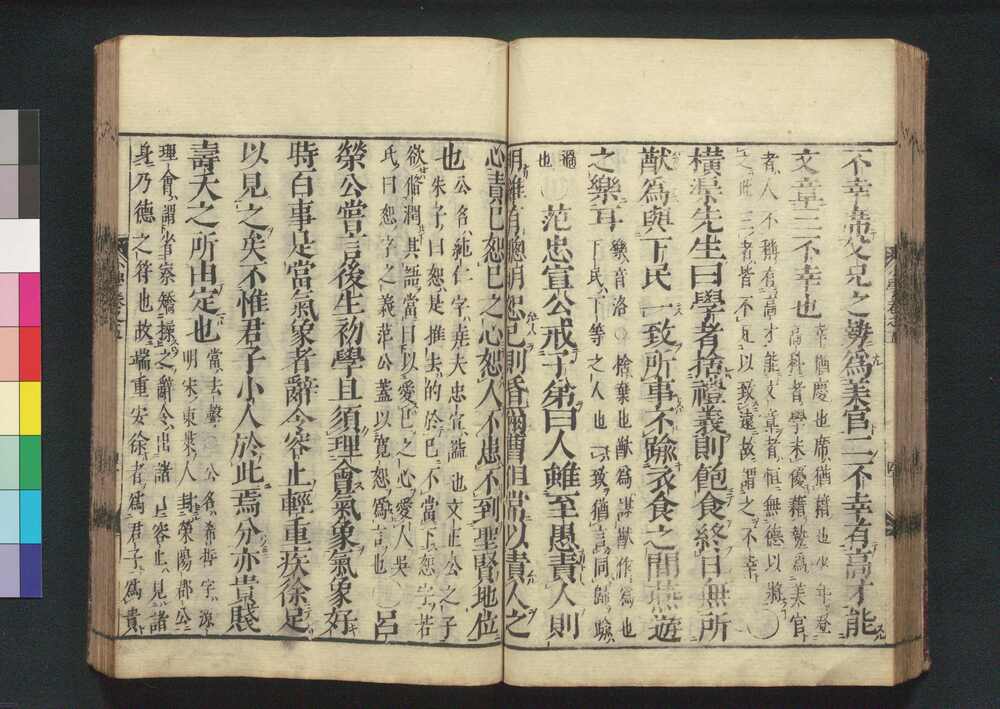 不幸席父兄之勢爲美官二不幸有高才能
文章三不幸也
幸猶慶也席猶藉也少年登
高科者學未優藉勢爲美官
者人不稱有高才能文章者恒無德以將
之此三者皆不足以致遠故謂之不幸〇
橫渠先生曰學者捨禮義則飽食終日無所
猷爲與下民一致所事不踰衣食之間燕遊
之樂耳
樂音洛〇捨棄也猷爲謀猷作爲也
下民下等之人也一致猶言同歸踰
過
也
范忠宣公戒子弟曰人雖至愚責人則
明雖有聰明恕己則昏爾曹但常以責人之
心責己恕己之心恕人不患不到聖賢地位
也
公名純仁字堯夫忠宣謚也文正公之子
朱子曰恕是推去的於己不當下恕字若
欲脩潤其語當曰以愛己之心愛人吳
氏曰恕字之義范公蓋以寬恕爲言也
呂
榮公嘗言後生初學且須理會氣象氣象好
時百事是當氣象者辭令容止輕重疾徐足
以見之矣不惟君子小人於此焉分亦貴賤
壽夭之所由定也
當去聲〇公名希哲字源
明宋東萊人封滎陽郡公
理會謂省察矯揉之辭令出諸口容止見諸
身乃德之符也故端重安徐者爲君子爲貴